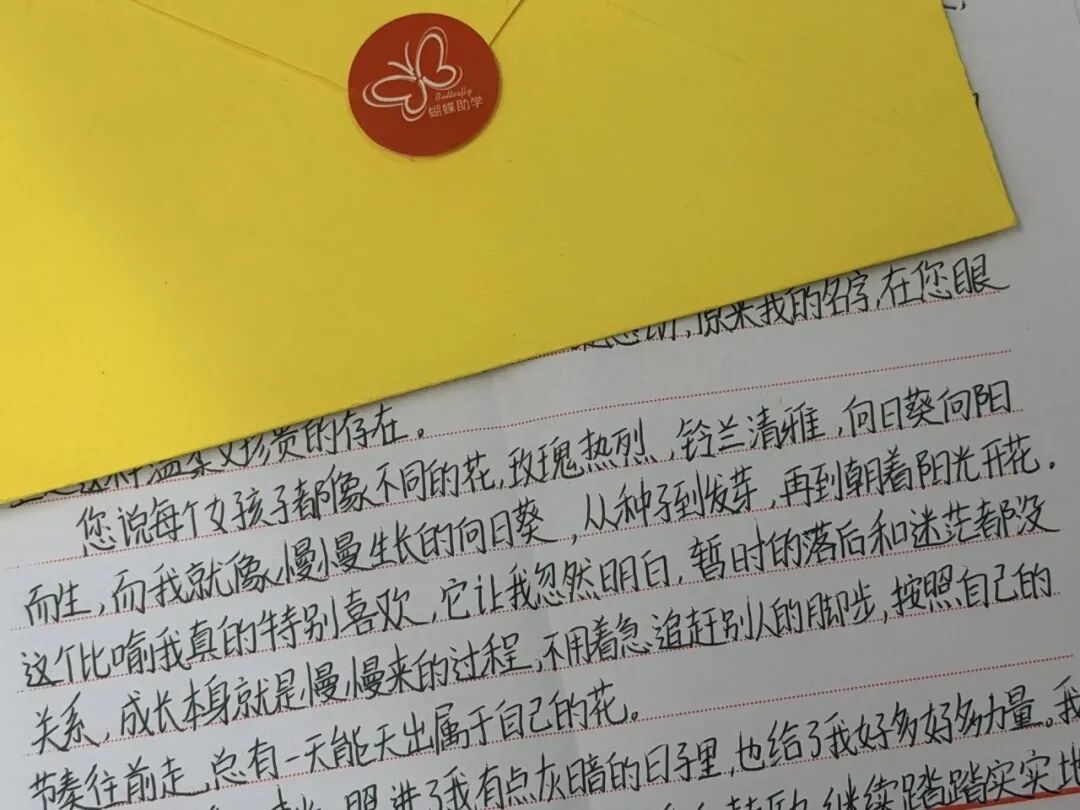 Butterfly
蝴蝶助学
原来我的名字,在您眼
珍贵的存在。
您说每个女孩子都像不同的花,玫瑰热烈,铃兰清雅,向日葵向阳
而生,而我就像慢慢生长的向日葵,从种子到发芽,再到朝着阳光开花。
这个比喻我真的特别喜欢,它让我忽然明白,暂时的落后和迷茫都没
关系,成长本身就是慢慢来的过程,不用着急追赶别人的脚步,按照自己的
节奏往前走,总有一天能天出属于自己的花。
照进了我有点灰暗的日子里,也给了我好多好多力量。我
继续踏踏实实地